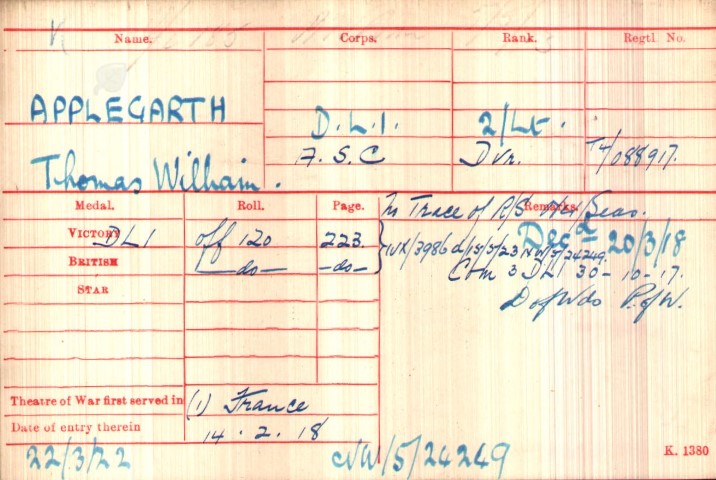 Name. Corps. Rank. Regtl. No.
APPLEGARTH D.L.I. 2/Lt.
Thomas William. A.S.C Dvr. T4/088917.
Medal. Roll. Page. Remarks.
No Trace of R/S O/Seas.
VICTORY DLI off 120 223 IVX/3986 d/15/5/23 NW/5/24249. Decd 20/3/18
BRITISH —do— —do— Com 3 DLI 30-10-17.
STAR D of Wds P. of W.
Theatre of War first served in (1) France
Date of entry therein 14.2.18
22/3/22 NW/5/24249 K. 1380